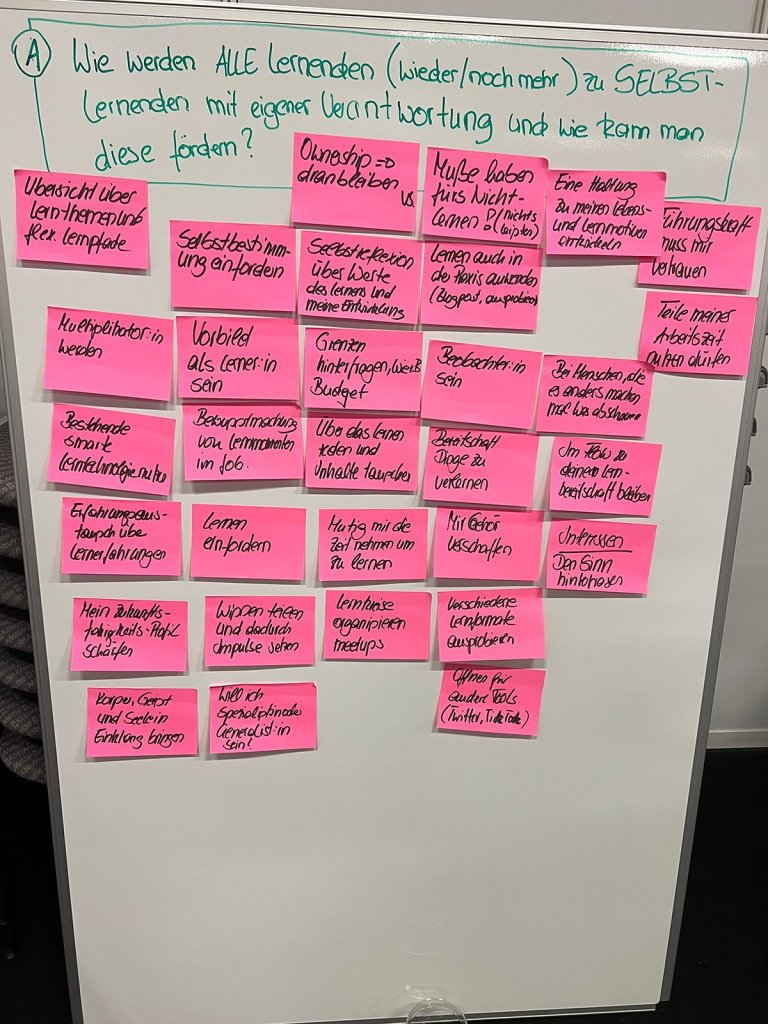 A
Wie werden ALLE Lernenden (wieder/noch mehr) zu SELBST-
Lernenden mit eigener Verantwortung und wie kann man
diese fördern?
Übersicht über
Lernthemen und
flex. Lernpfade
Ownership =>
dranbleiben
vs
Muße haben
fürs Nicht-
Lernen (nichts
leisten)
Eine Haltung
zu meinen Lebens-
und Lernmotiven
entwickeln
Führungskraft
muss mir
vertrauen
Selbstbestimm-
ung einfordern
Selbstreflektion
über Werte
des Lernens und
meine Entwicklung
Lernen auch in
der Praxis anwenden
(Blogpost, ausprobieren)
Teile meiner
Arbeitszeit
nutzen dürfen
Multiplikator:in
werden
Vorbild
als Lerner:in
sein
Grenzen
hinterfragen,
Budget
Beobachter:in
sein
Bei Menschen, die
es anders machen
mal was abschauen
Bestehende
smarte
Lerntechnologie nutzen
Bewusstmachung
von Lernmomenten
im Job.
Über das Lernen
reden und
Inhalte tauschen
Bereitschaft
Dinge zu
verlernen
Im Flow zu
deiner Lern-
bereitschaft bleiben
Erfahrungsaus-
tausch über
Lernerfahrungen
Lernen
einfordern
Mutig mir die
Zeit nehmen um
zu lernen
Mir Gehör
verschaffen
Interessen
Den Sinn
hinterfragen
Mein Zukunfts-
fähigkeits-Profil
schärfen
Wissen teilen
und dadurch
Impulse setzen
Lernkreise
organisieren
meetups
Verschiedene
Lernformate
ausprobieren
Körper, Geist
und Seele in
Einklang bringen
Will ich
Spezialist:in oder
Generalist:in
sein?
Öffnen für
andere Tools
(Twitter, TikTok)